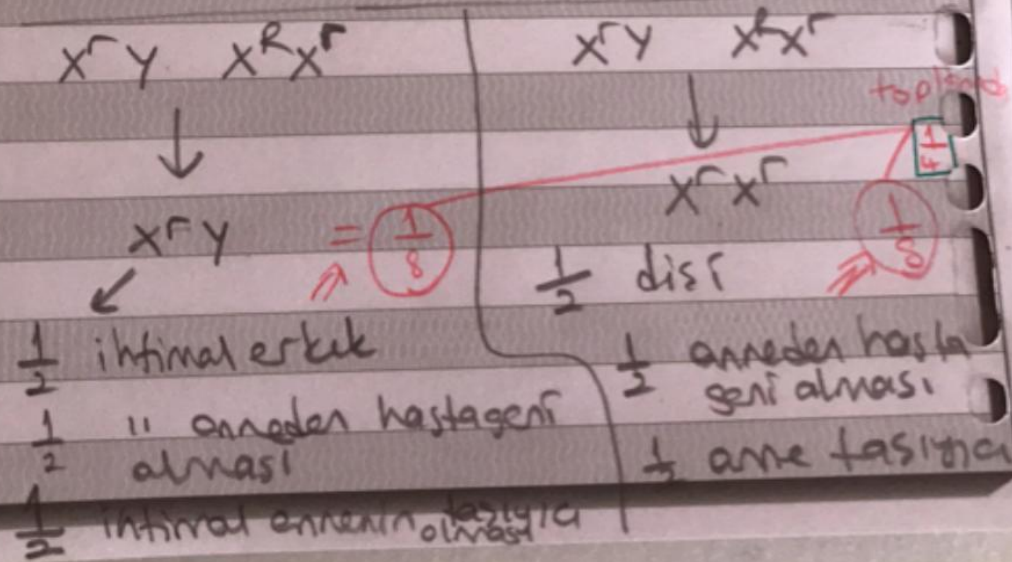 XʳY XᴿXʳ
↓
XʳY = 1/8
1/2 ihtimal erkek
1/2 " anneden hastageni
alması
1/2 ihtimal annenin taşıyıcı
olması
XʳY XᴿXʳ
↓
XʳXʳ
1/2 dişi
1/2 anneden hasta
geni alması
1/2 anne taşıyıcı
1/8
1/4